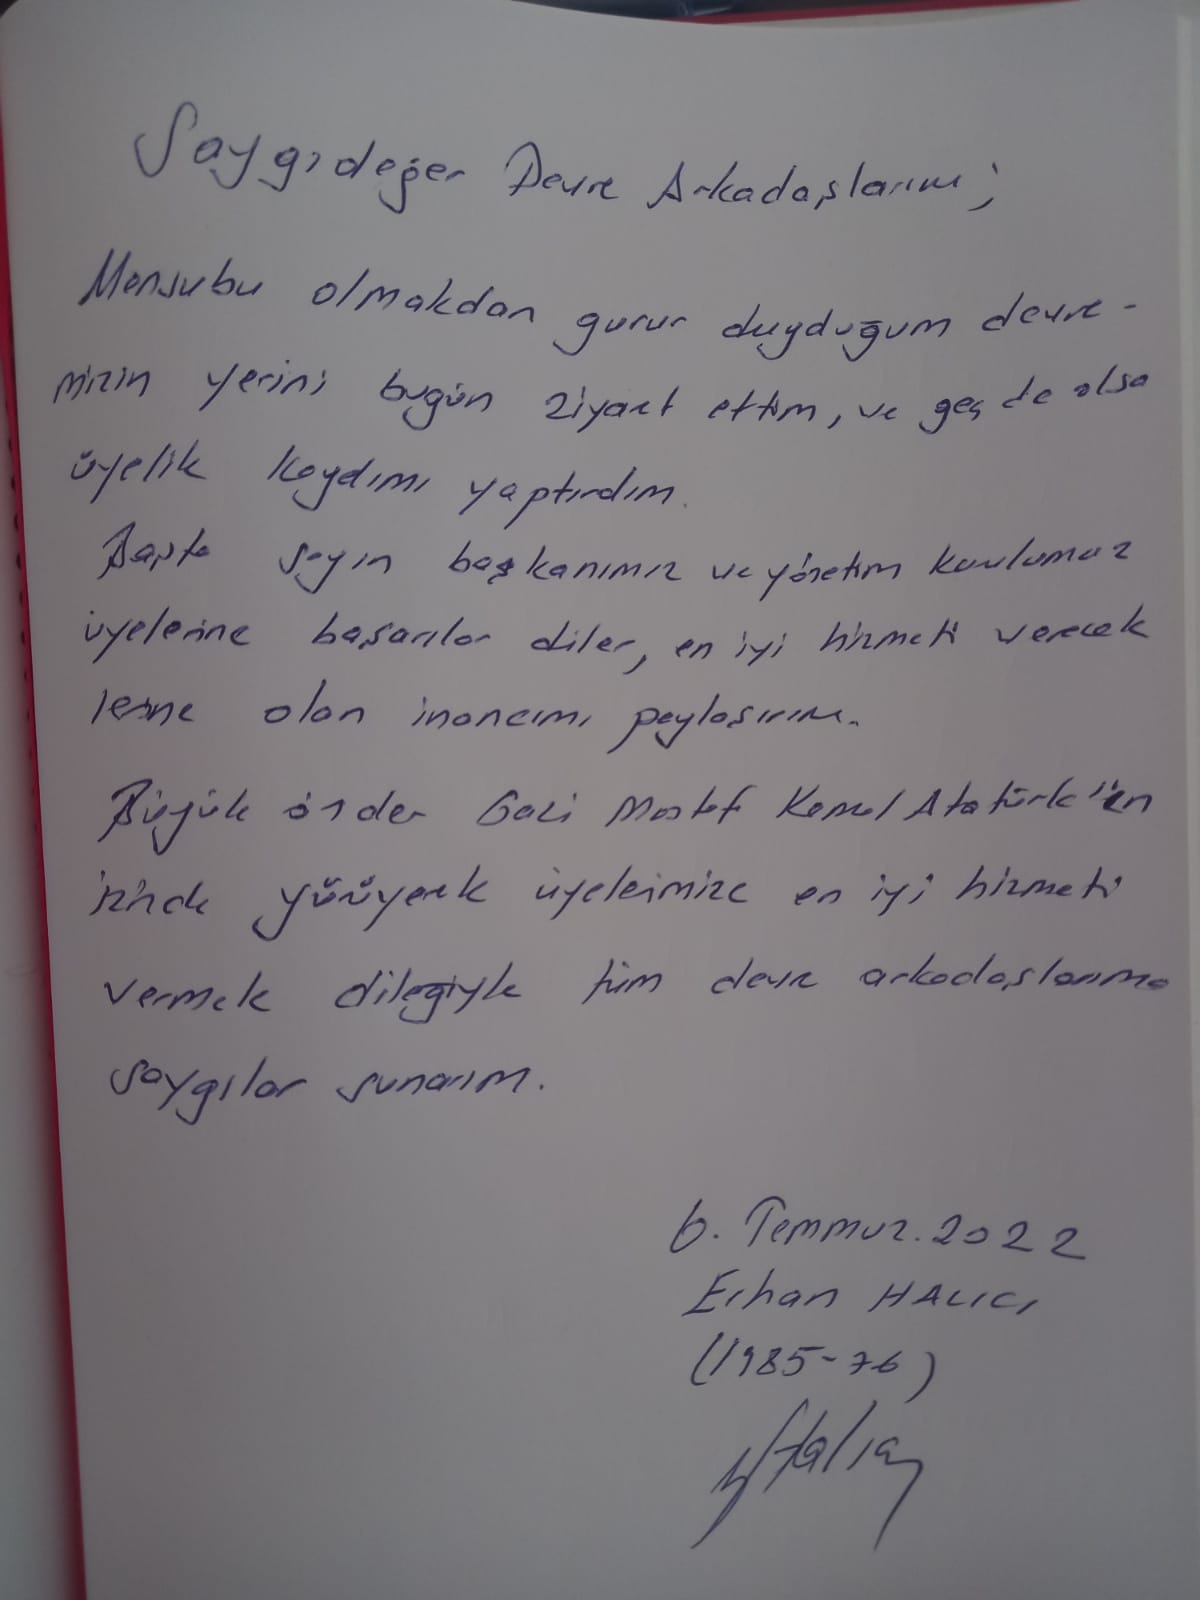 Saygıdeğer Devre Arkadaşlarım;
Mensubu olmakdan gurur duyduğum devre-
mizin yerini bugün ziyaret ettim, ve geç de olsa
üyelik kaydımı yaptırdım.
Başta sayın başkanımız ve yönetim kurulumuz
üyelerine başarılar diler, en iyi hizmeti verecek
lerine olan inancımı paylaşırım.
Büyük önder Gazi Mustaf Kemal Atatürk'ün
izinde yürüyerek üyelerimize en iyi hizmeti
vermek dileğiyle tüm devre arkadaşlarıma
saygılar sunarım.
6. Temmuz.2022
Erhan HALICI
(1985-76)